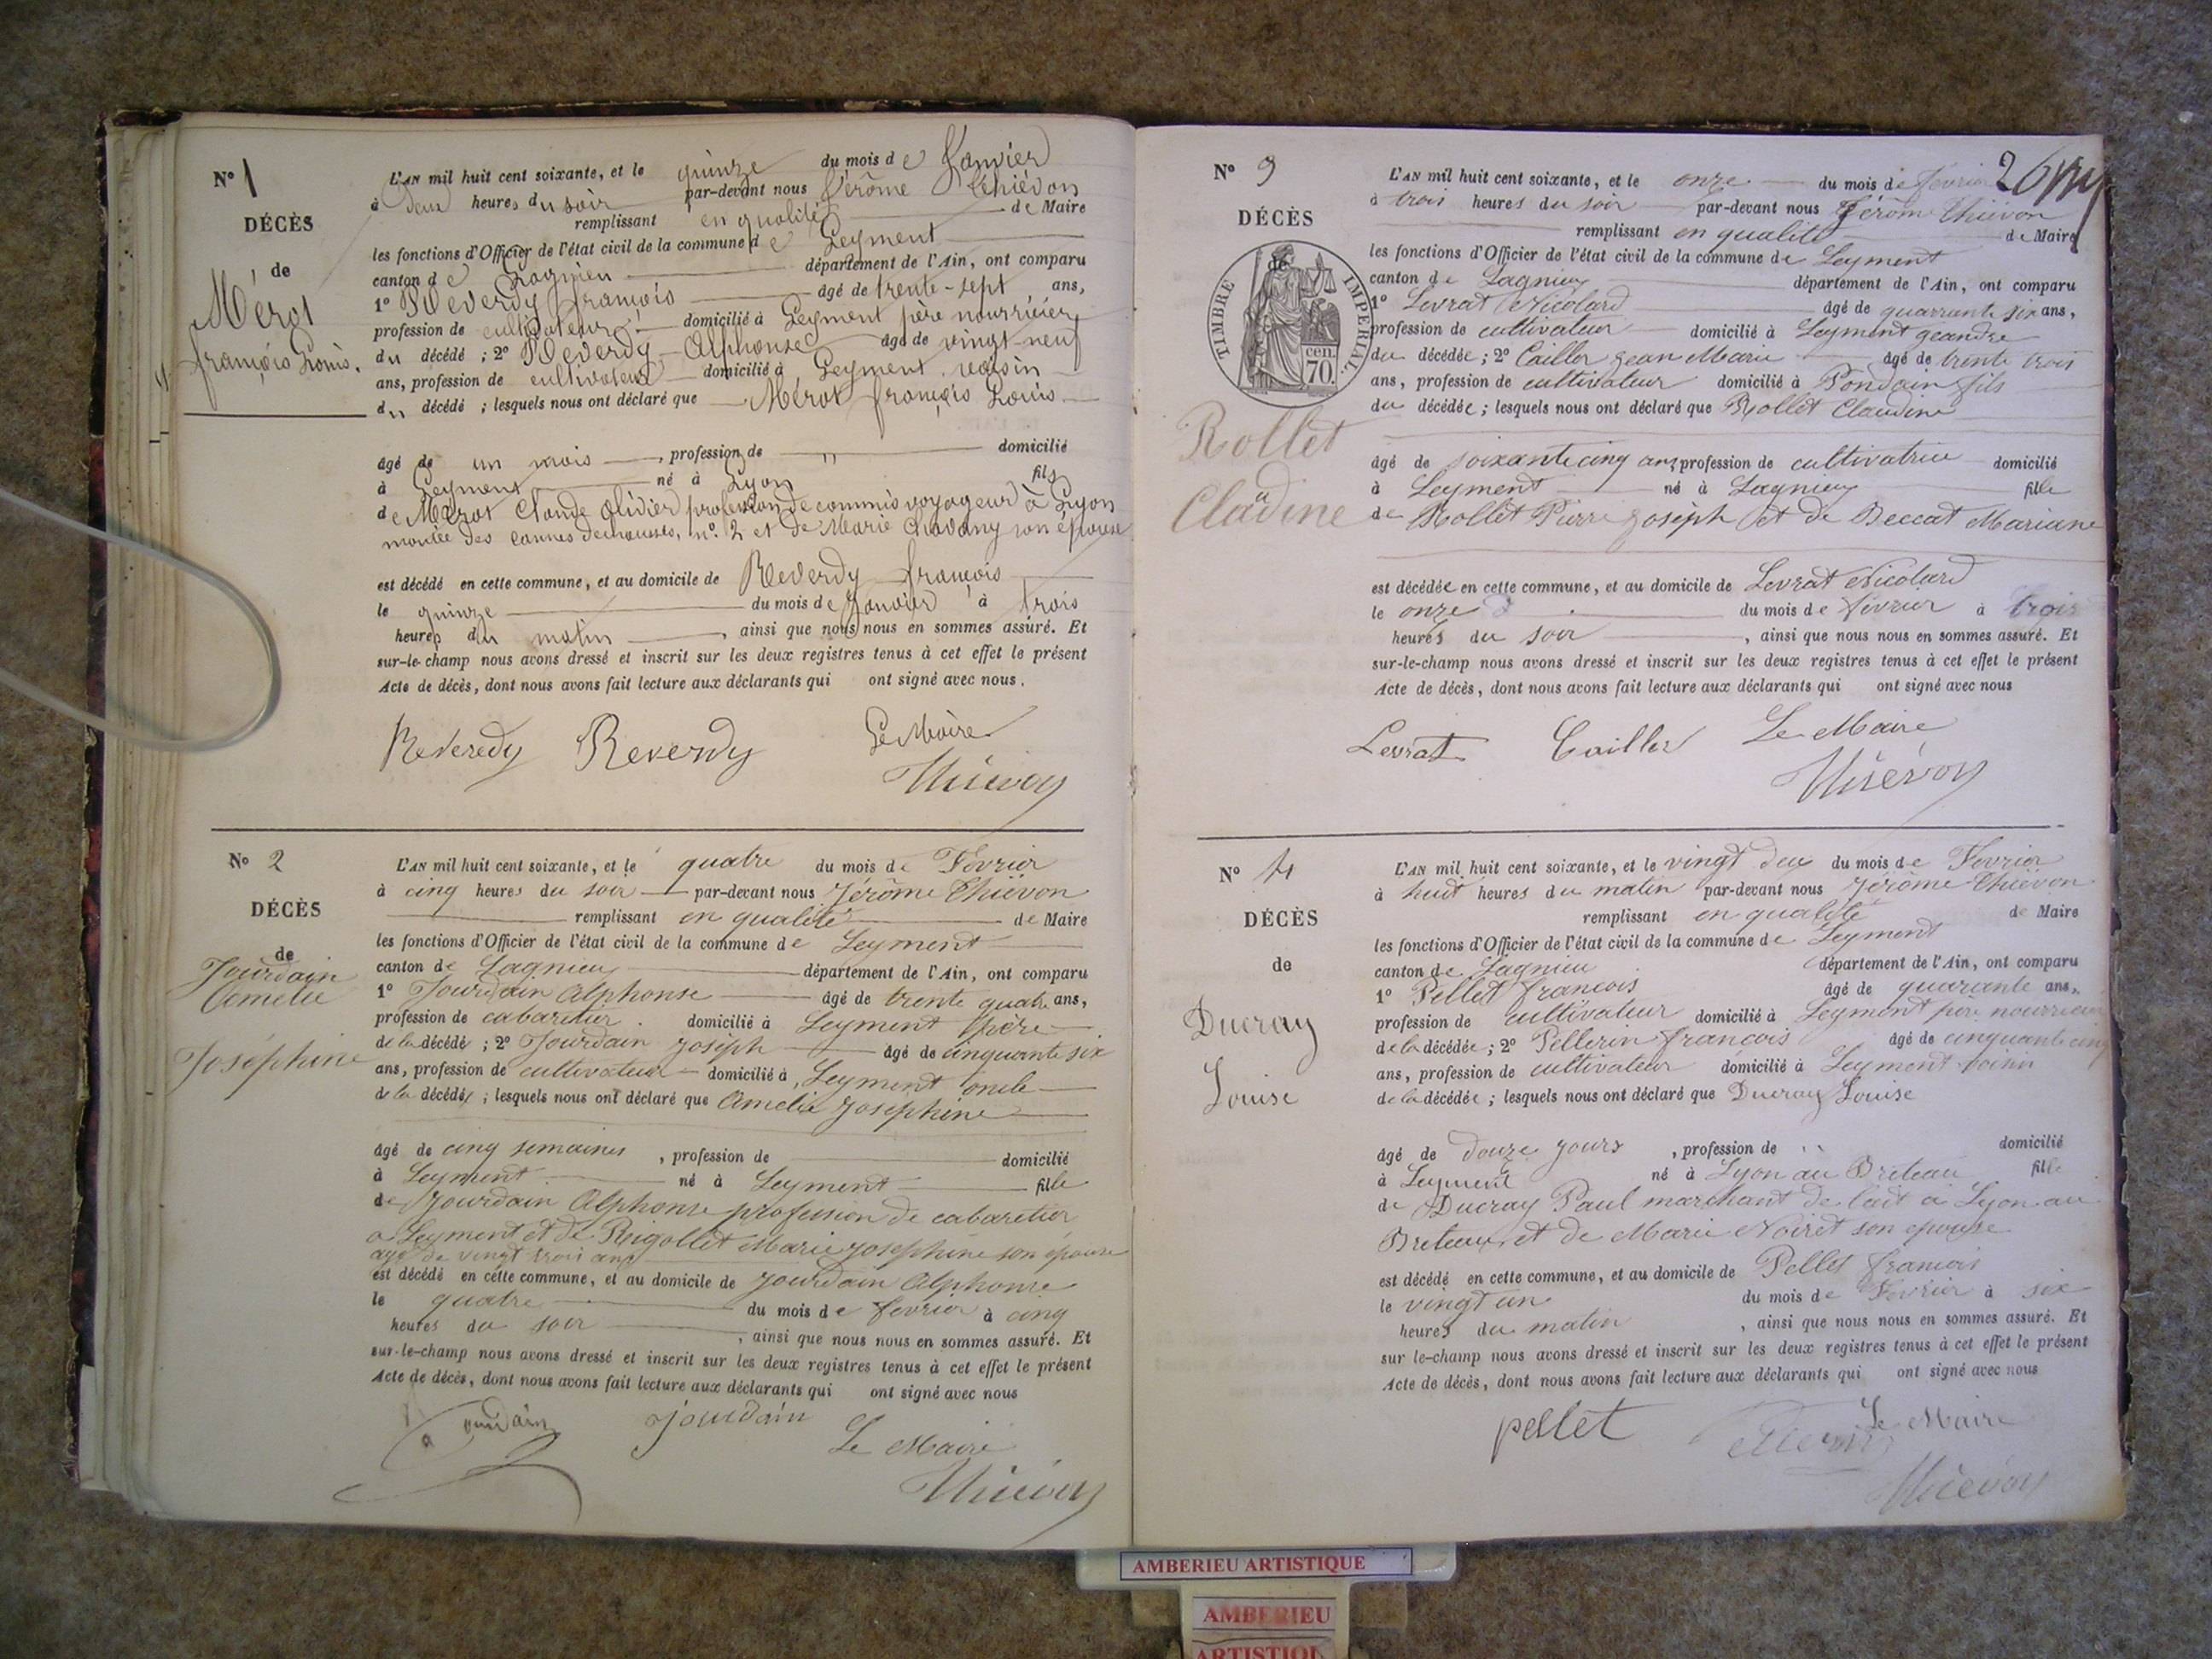 N° 1
DÉCÈS
de
Mérot
françois Louis.
L'AN mil huit cent soixante, et le quinze du mois de Janvier
à Deux heures du soir par-devant nous Jérôme Thiévon
remplissant en qualité de Maire
les fonctions d'Officier de l'état civil de la commune de Leyment
canton de Lagnieu département de l'Ain, ont comparu
1° Reverdy françois âgé de trente-sept ans,
profession de cultivateur domicilié à Leyment père nourricier
du décédé ; 2° Reverdy Alphonse âgé de vingt-neuf
ans, profession de cultivateur domicilié à Leyment voisin
du décédé ; lesquels nous ont déclaré que Mérot françois Louis
âgé de un mois , profession de " domicilié
à Leyment né à Lyon fils
de Mérot Claude Olidier profession de commis voyageur à Lyon
montée des n° 2 et de Marie Chavany son épouse
est décédé en cette commune, et au domicile de Reverdy françois
le quinze du mois de Janvier à trois
heures du matin , ainsi que nous nous en sommes assuré. Et
sur-le-champ nous avons dressé et inscrit sur les deux registres tenus à cet effet le présent
Acte de décès, dont nous avons fait lecture aux déclarants qui ont signé avec nous.
Reveredy Reverdy Le Maire
Thiévon
N° 2
DÉCÈS
de
Jourdain
Joséphine
L'AN mil huit cent soixante, et le quatre du mois de Fevrier
à cinq heures du soir par-devant nous Jérôme Thiévon
remplissant en qualité de Maire
les fonctions d'Officier de l'état civil de la commune de Leyment
canton de Lagnieu département de l'Ain, ont comparu
1° Jourdain Alphonse âgé de trente quatre ans,
profession de cabaretier domicilié à Leyment père
de la décédé ; 2° Jourdain Joseph âgé de cinquante six
ans, profession de cultivateur domicilié à Leyment oncle
de la décédé ; lesquels nous ont déclaré que Amelie Joséphine
âgé de cinq semaines , profession de domicilié
à Leyment né à Leyment fille
de Jourdain Alphonse profession de cabaretier
a Leyment et de Rigollet Marie Josephine son épouse
age de vingt trois ans
est décédé en cette commune, et au domicile de Jourdain Alphonse
le quatre du mois de fevrier à cinq
heures du soir , ainsi que nous nous en sommes assuré. Et
sur-le-champ nous avons dressé et inscrit sur les deux registres tenus à cet effet le présent
Acte de décès, dont nous avons fait lecture aux déclarants qui ont signé avec nous
Jourdain jourdain Le Maire
Thiévon
N° 3
DÉCÈS
de
TIMBRE IMPÉRIAL.
cen.
70.
Rollet
Cladine
26
L'AN mil huit cent soixante, et le onze du mois de fevrier
à trois heures du soir par-devant nous Jérôme Thiévon
remplissant en qualité de Maire
les fonctions d'Officier de l'état civil de la commune de Leyment
canton de Lagnieu département de l'Ain, ont comparu
1° Levrat Nicolard âgé de quarrante six ans,
profession de cultivateur domicilié à Leyment geandre
du décédée ; 2° Cailler Jean Marie âgé de trente trois
ans, profession de cultivateur domicilié à fils
du décédée ; lesquels nous ont déclaré que Rollet Claudine
âgé de soixante cinq ans profession de cultivatrice domicilié
à Leyment né à Lagnieu fille
de Rollet Pierre Joseph et de Beccat Mariane
est décédée en cette commune, et au domicile de Levrat Nicolard
le onze du mois de février à trois
heures du soir , ainsi que nous nous en sommes assuré. Et
sur-le-champ nous avons dressé et inscrit sur les deux registres tenus à cet effet le présent
Acte de décès, dont nous avons fait lecture aux déclarants qui ont signé avec nous
Levrat Cailler Le Maire
Thiévon
N° 4
DÉCÈS
de
Ducray
Louise
L'AN mil huit cent soixante, et le vingt deu du mois de Fevrier
à huit heures du matin par-devant nous Jérôme Thiévon
remplissant en qualité de Maire
les fonctions d'Officier de l'état civil de la commune de Leyment
canton de Lagnieu département de l'Ain, ont comparu
1° Pellet francois âgé de quarante ans,
profession de cultivateur domicilié à Leyment père nourricier
de la décédée ; 2° Pellerin francois âgé de cinquante cinq
ans, profession de cultivateur domicilié à Leyment voisin
de la décédée ; lesquels nous ont déclaré que Ducray Louise
âgé de douze jours , profession de " domicilié
à Leyment né à Lyon au Broteau fille
de Ducray Paul marchant de lait a Lyon au
Broteaux et de Marie Noiret son epouse
est décédé en cette commune, et au domicile de Pellet francois
le vingt un du mois de Février à six
heures du matin , ainsi que nous nous en sommes assuré. Et
sur le-champ nous avons dressé et inscrit sur les deux registres tenus à cet effet le présent
Acte de décès, dont nous avons fait lecture aux déclarants qui ont signé avec nous
pellet Le Maire
Thiévon
AMBERIEU ARTISTIQUE
AMBERIEU
ARTISTIQU